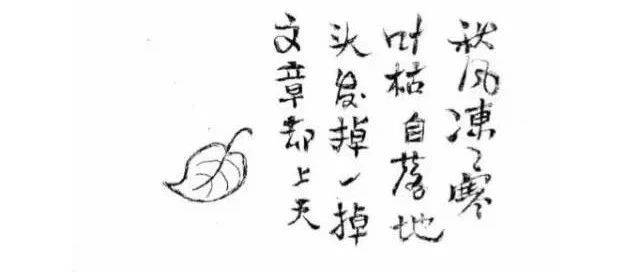 秋风凍々寒
叶枯自落地
头发掉一掉
文章却上天